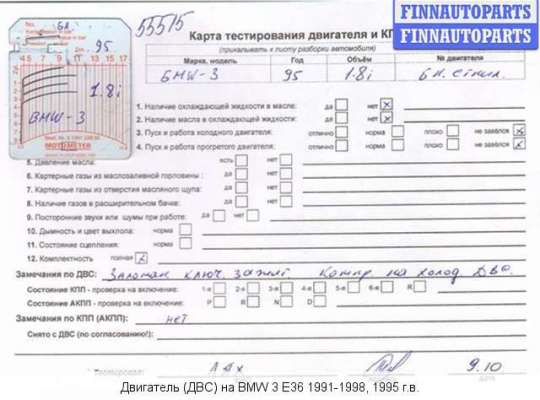 55515
FINNAUTOPARTS
FINNAUTOPARTS
95
4 5 7 9 11 13 15 17
1.8i
BMW-3
MOTOMETER
Карта тестирования двигателя и КП
(прикалывать к листу разборки автомобиля)
Марка, модель Год Объём № двигателя
БМW-3 95 1.8i
1. Наличие охлаждающей жидкости в масле: да нет x
2. Наличие масла в охлаждающей жидкости: да нет x
3. Пуск и работа холодного двигателя: отлично норма плохо не завёлся x
4. Пуск и работа прогретого двигателя: отлично норма плохо не завёлся x
5. Давление масла: есть нет
6. Картерные газы из маслозаливной горловины : да нет
7. Картерные газы из отверстия масляного щупа: да нет
8. Наличие газов в расширительном бачке: да нет
9. Посторонние звуки или шумы при работе: да нет
10. Дымность и цвет выхлопа: норма
11. Состояние сцепления: норма
12. Комплектность полная x
Замечания по ДВС: Заломан ключ. зажиг Компр на холод ДВС.
Состояние КПП - проверка на включение: 1-я 2-я 3-я 4-я 5-я 6-я R
Состояние АКПП - проверка на включение: P R N D
Замечания по КПП (АКПП): нет
Снято с ДВС (по согласованию!):
9.10
Двигатель (ДВС) на BMW 3 E36 1991-1998, 1995 г.в.